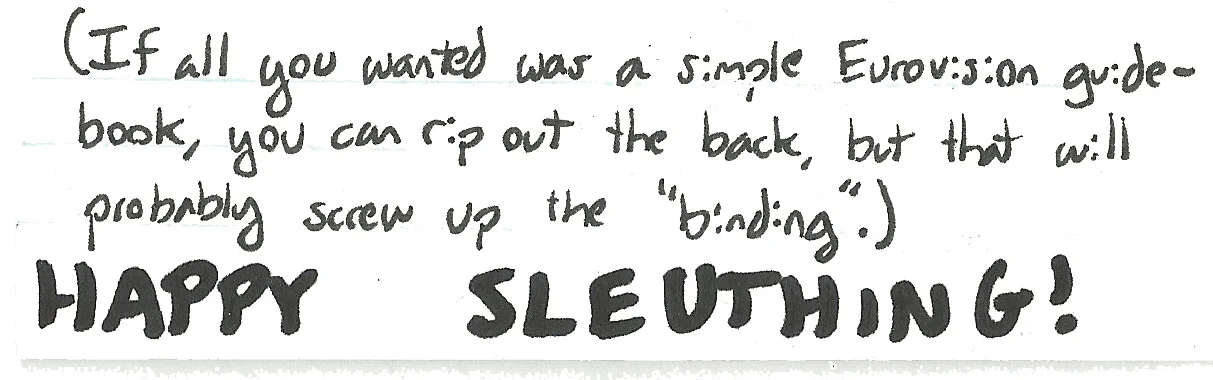 (If all you wanted was a simple Eurovision guide-
book, you can rip out the back, but that will
probably screw up the "binding".)
HAPPY SLEUTHING!